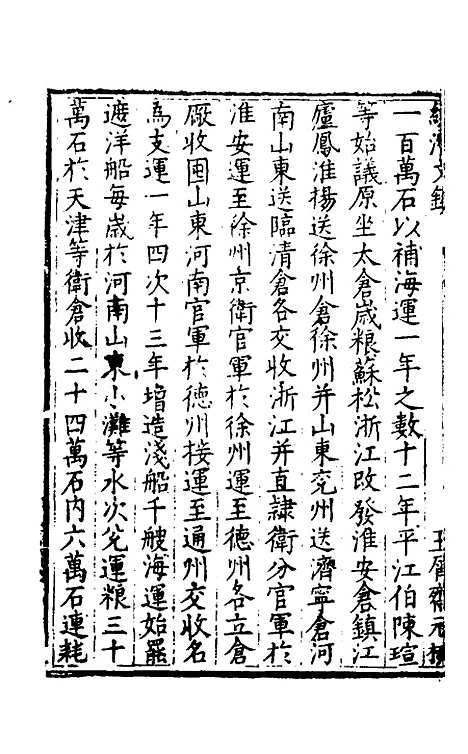 經濟文鈔
一百萬石以補海運一年之數十二年平江伯陳瑄
等始議原坐太倉歲粮蘇松浙江改發淮安倉鎮江
廬鳳淮楊送徐州倉徐州并山東兖州送濟寧倉河
南山東送臨清倉各交收浙江并直隷衛分官軍扵
淮安運至徐州京衛官軍扵徐州運至德州各立倉
厫收囤山東河南官軍扵德州接運至通州交收名
爲支運一年四次十三年增造淺船千艘海運始罷
遮洋船每歲扵河南山東小灘等水次兊運粮三十
萬石扵天津等衛倉收二十四萬石内六萬石連耗